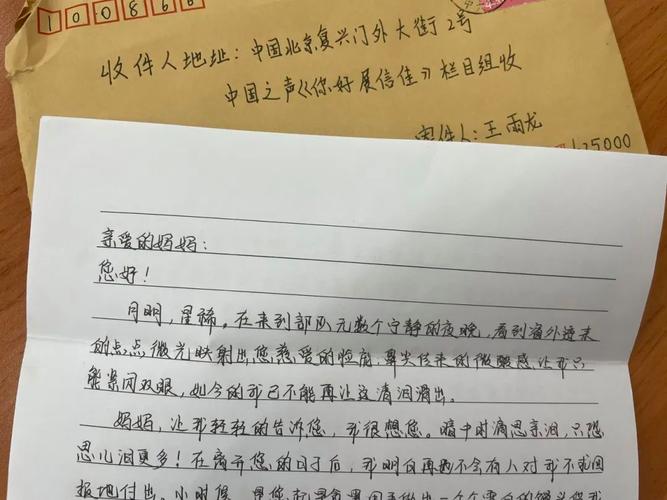 100866
收件人地址：中国北京复兴门外大街2号
中国之声《你好展信佳》栏目组收
寄件人：王雨龙
125000
亲爱的妈妈：
您好！
月明，星稀。在来到部队无数个宁静的夜晚，看到窗外透来
的点点微光映射出您慈爱的脸庞，鼻尖传来的微酸感让我只
能紧闭双眼，如今的我已不能再让这清泪滑出。
妈妈，让我轻轻的告诉您，我很想您。暗中时滴思亲泪，只恐
思儿泪更多！在离开您的日子后，我明白再也不会有人对我不求回
报地付出。小时候，是您